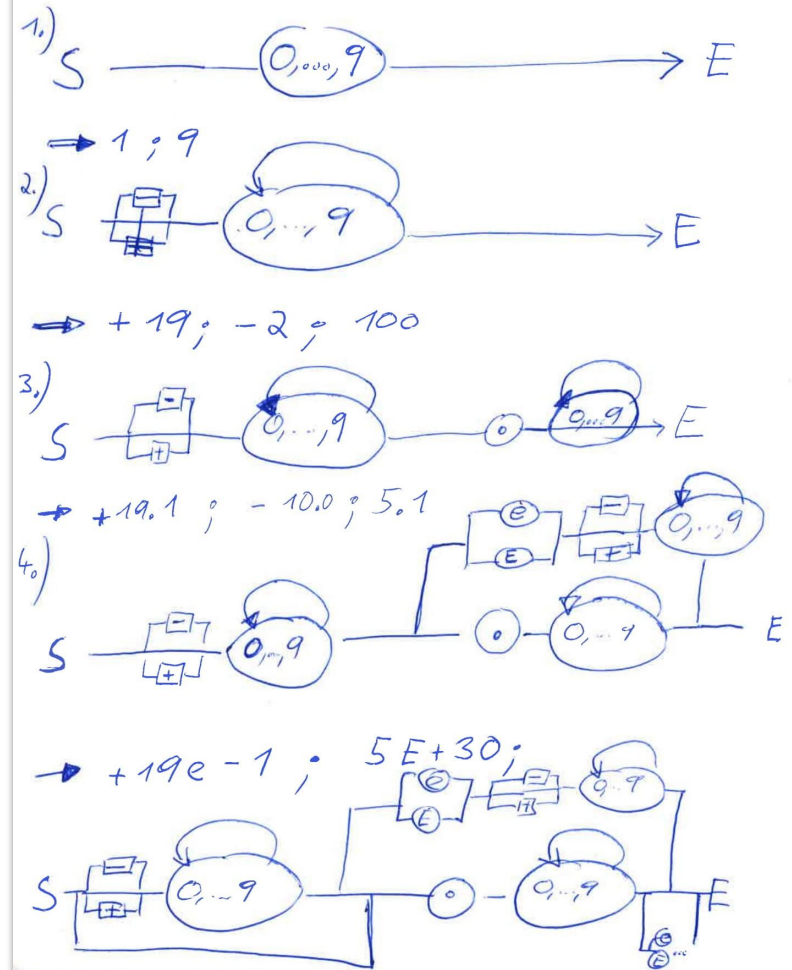 1.)
S 0,...,9 E
→ 1 ; 9
2.)
-
S 0,...,9 E
→ +19; -2 ; 100
3.)
-
S 0,...,9 . 0,...9 E
+
→ +19.1 ; -10.0 ; 5.1
e - 0,...,9
E +
4.)
-
S 0,...,9 . 0,...9 E
+
→ +19e-1 ; 5E+30;
e - 0,..9
E +
-
S 0,...9 . 0,...,9 E
+
e
E ...